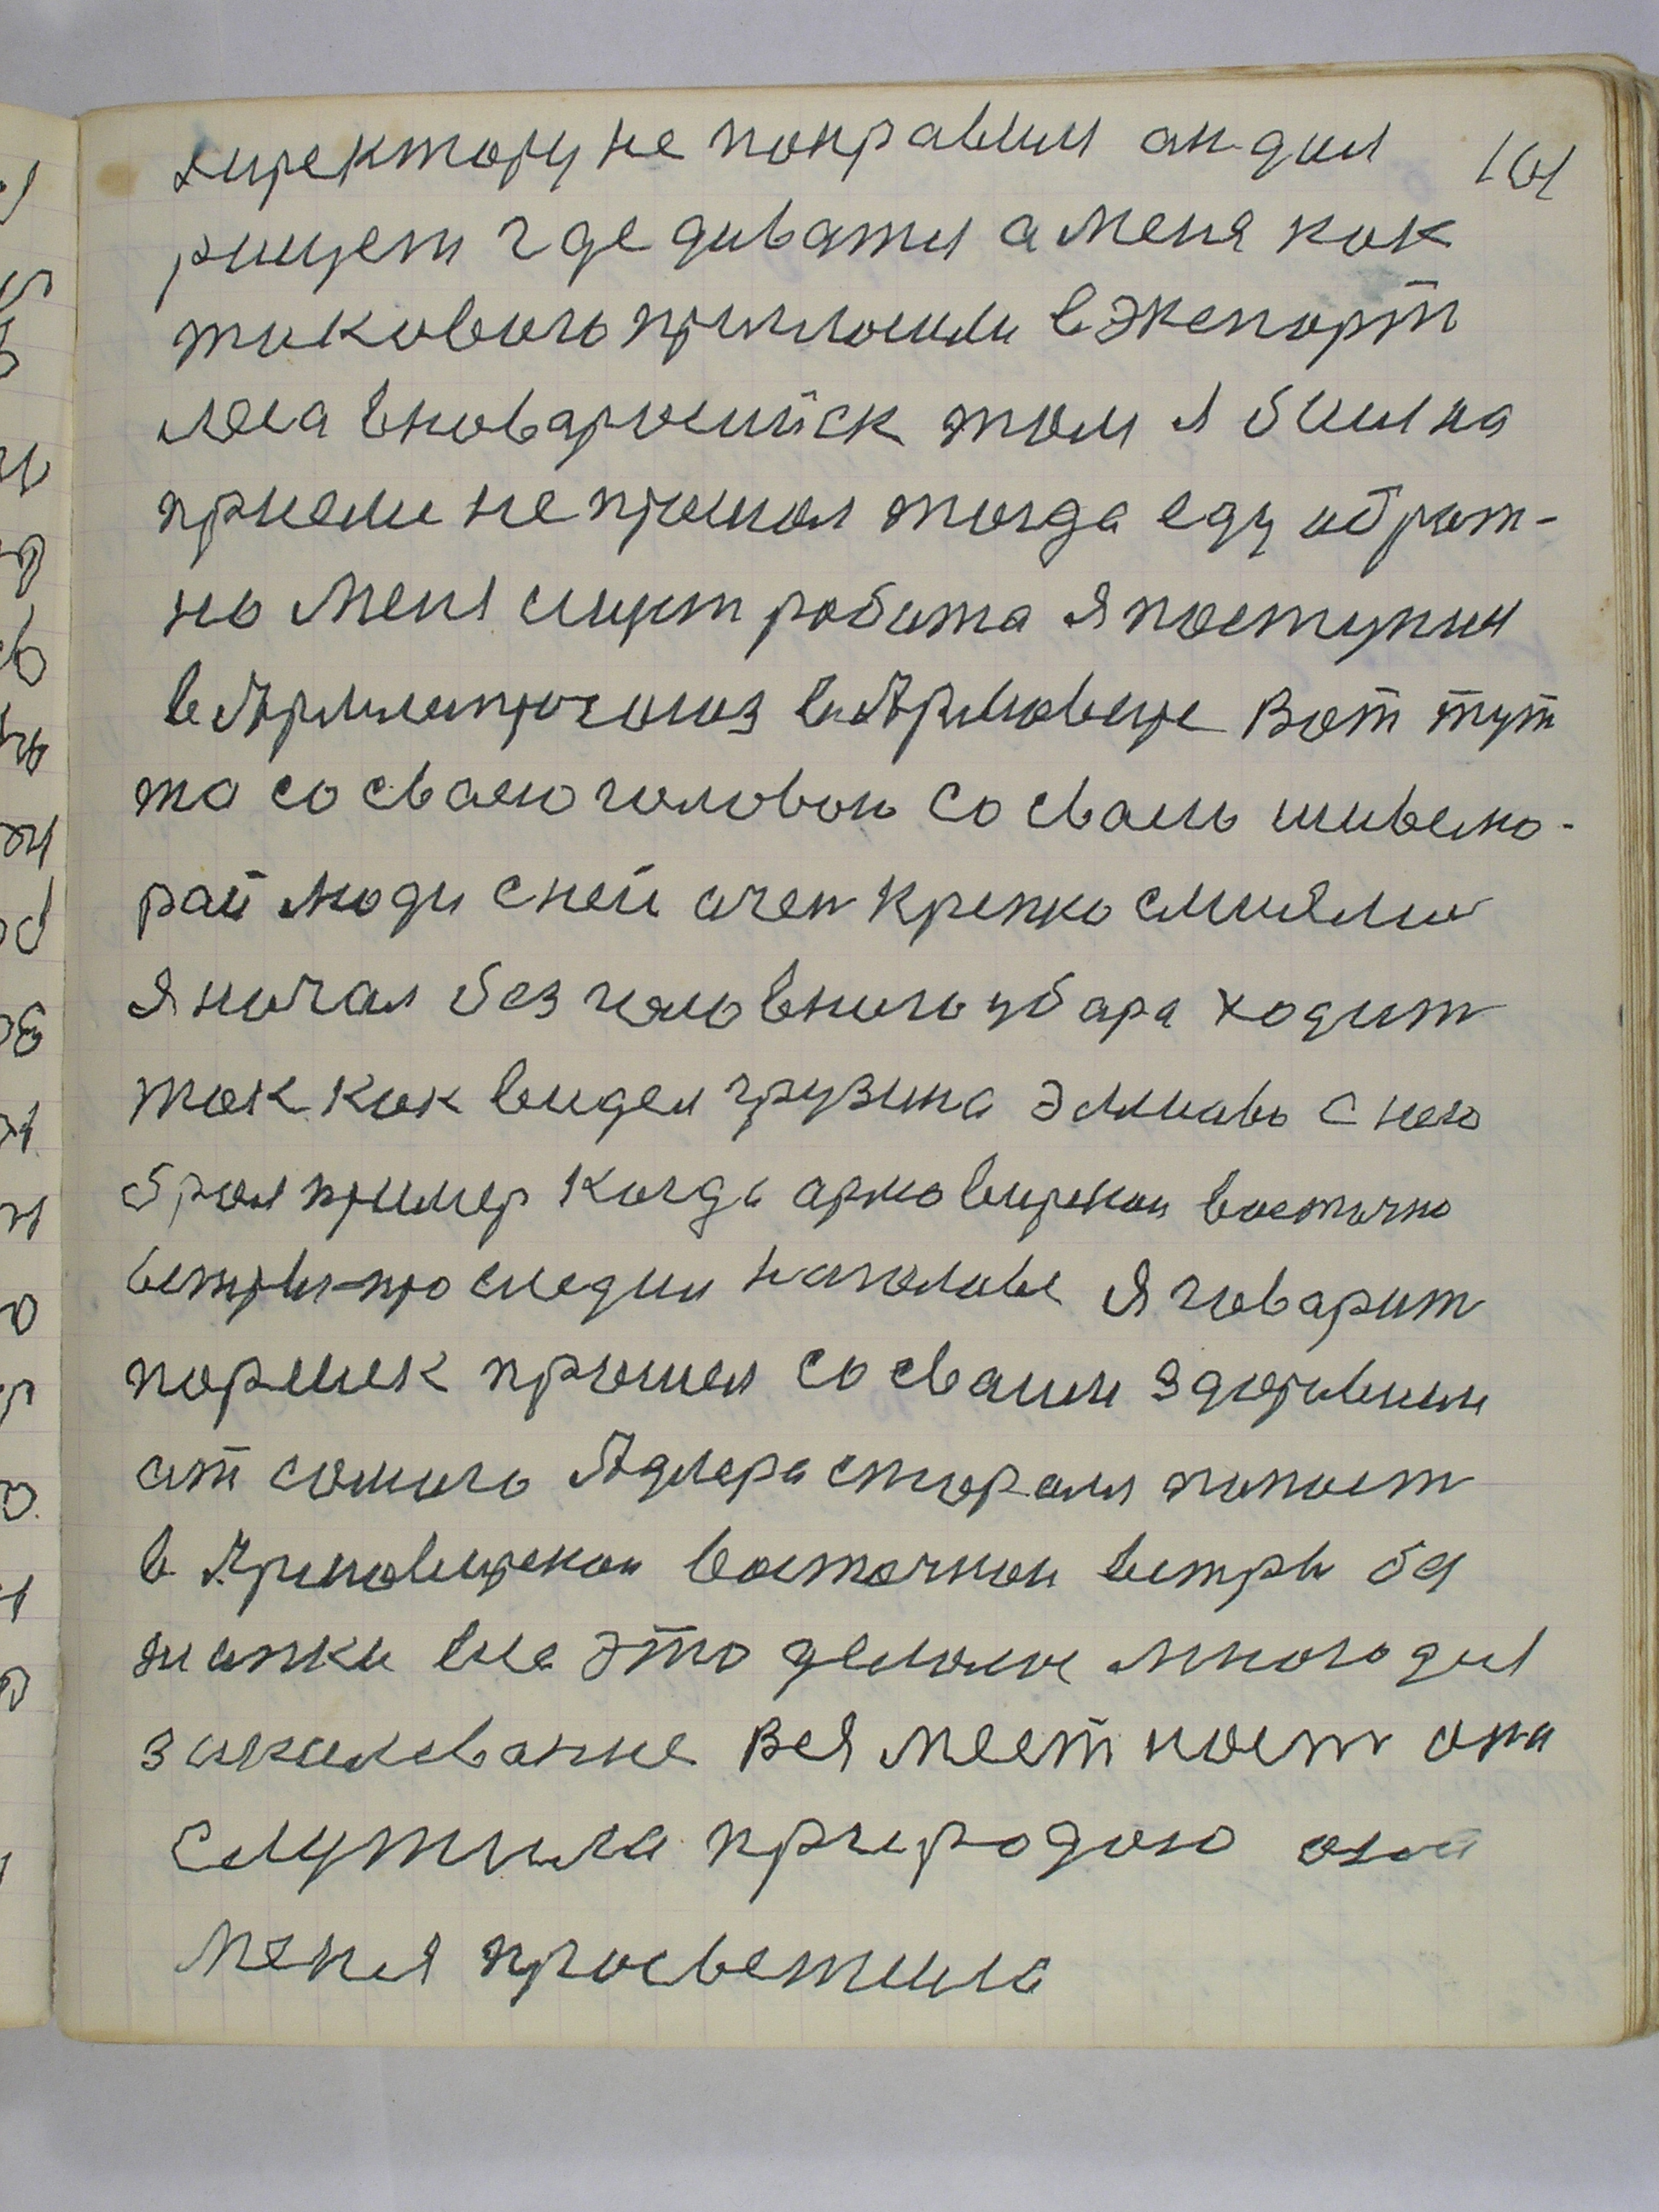 директору не понравился ан дил 161
рищет где диватся а меня как
токового приглосили в Экспорт
леса вноваросийск том я бил на
приеме не прошол тогда еду обрат-
но меня ищит работа я поступил
в Армлеспрогсоюз в Армовере Вот тут
то со сваею головою со сваею шивелю-
рай люди с ней очен крепко смиялис
Я начал без головного убора ходит
так как видел грузина с него
брал пример когда армовирскои восточно
ветры последил наголаве Я говарит
поршек пришел со сваим здоровием
от самого Адлера старался попаст
в Армовирскои восточнои ветры бес
шапки все это делалос много для
закаливание Вся местност она
смутила природою она
меня просветила